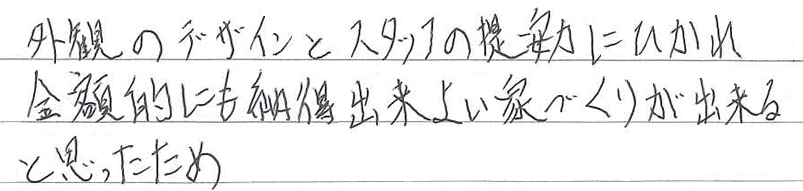 外観のデザインとスタッフの提案力にひかれ
金額的にも納得出来よい家づくりが出来る
と思ったため